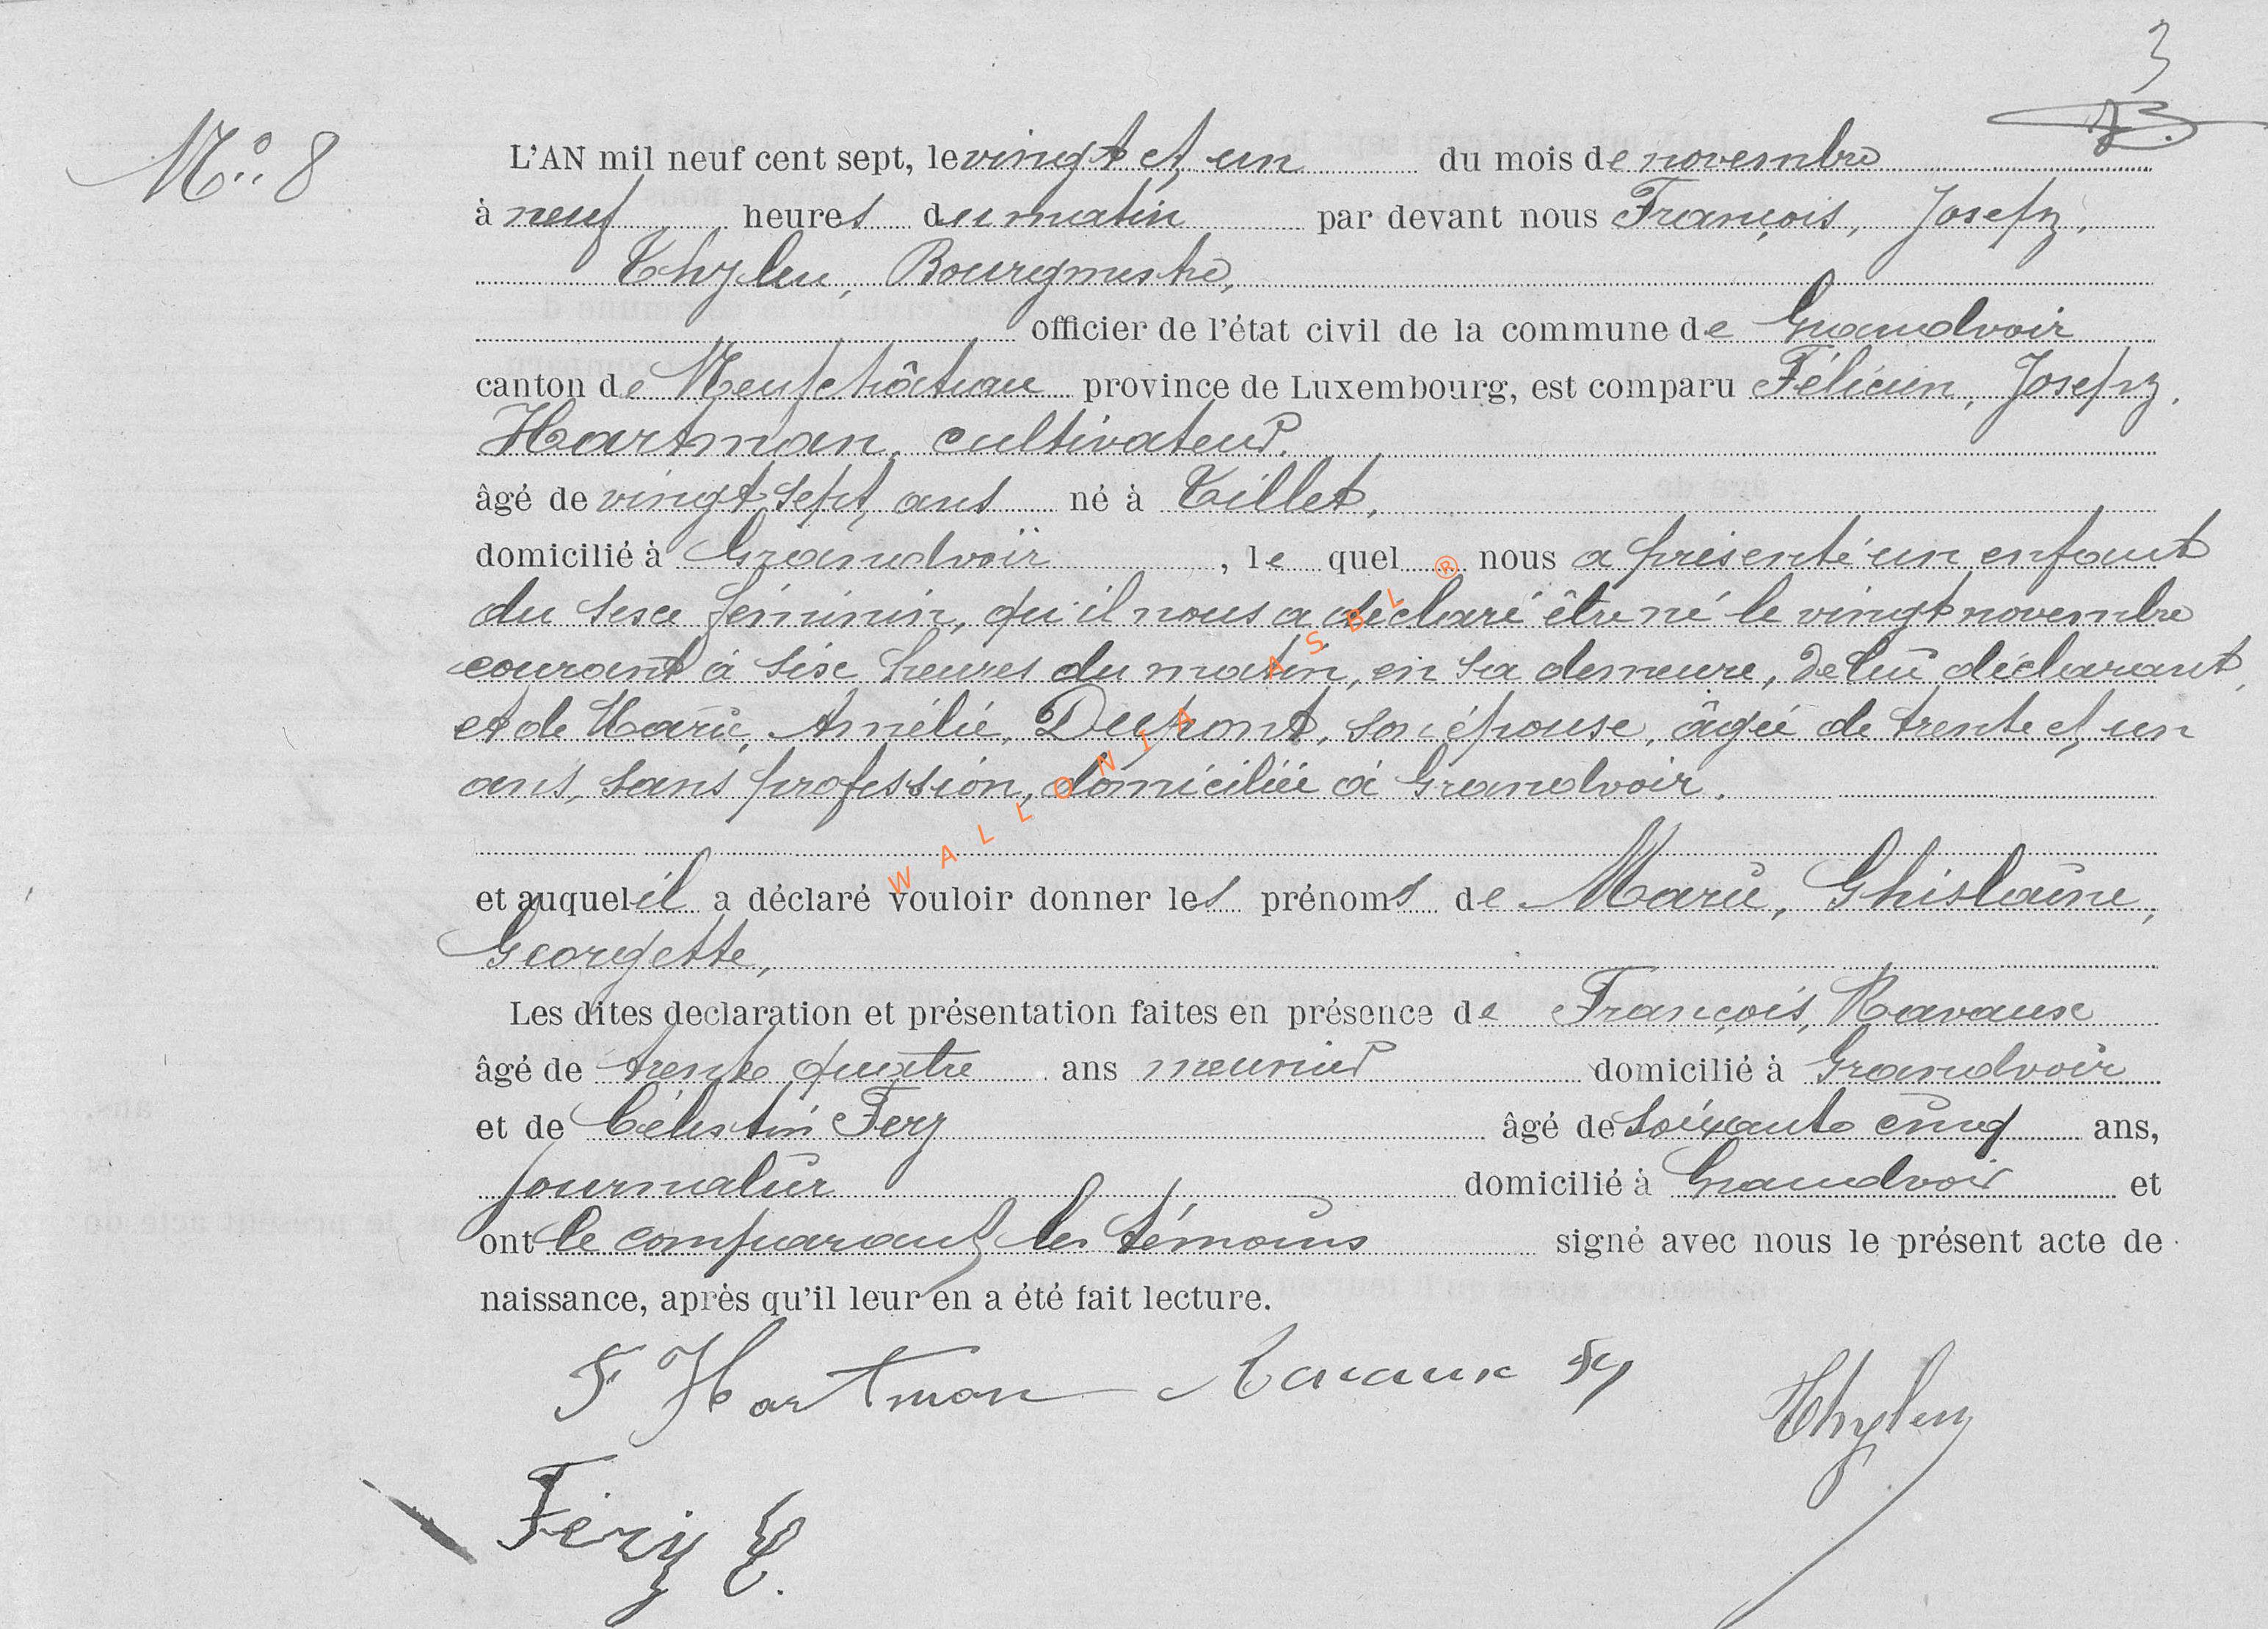 3
N° 8
L'AN mil neuf cent sept, le vingt et un du mois de novembre
à neuf heures du matin par devant nous François, Joseph,
Thyleu, Bourgmestre,
officier de l'état civil de la commune de Grandvoir
canton de Neufchâteau province de Luxembourg, est comparu Félicien, Joseph,
Hartman, cultivateur,
âgé de vingt sept ans né à Tillet,
domicilié à Grandvoir , le quel nous a présenté un enfant
du sexe féminin, qu'il nous a déclaré être né le vingt novembre
courant à six heures du matin, en sa demeure, de lui déclarant,
et de Marie, Amélie, Dupont, son épouse, âgée de trente et un
ans, sans profession, domiciliée à Grandvoir.
WALLONIA ASBL ®
et auquel il a déclaré vouloir donner les prénoms de Marie, Ghislaine,
Georgette,
Les dites declaration et présentation faites en présence de François, Ravaux
âgé de trente quatre ans meunier domicilié à Grandvoir
et de Célestin Fery âgé de soixante cinq ans,
journalier domicilié à Grandvoir et
ont le comparant & les témoins signé avec nous le présent acte de
naissance, après qu'il leur en a été fait lecture.
F Hartman Ravaux fs Thyleu
Féry C.